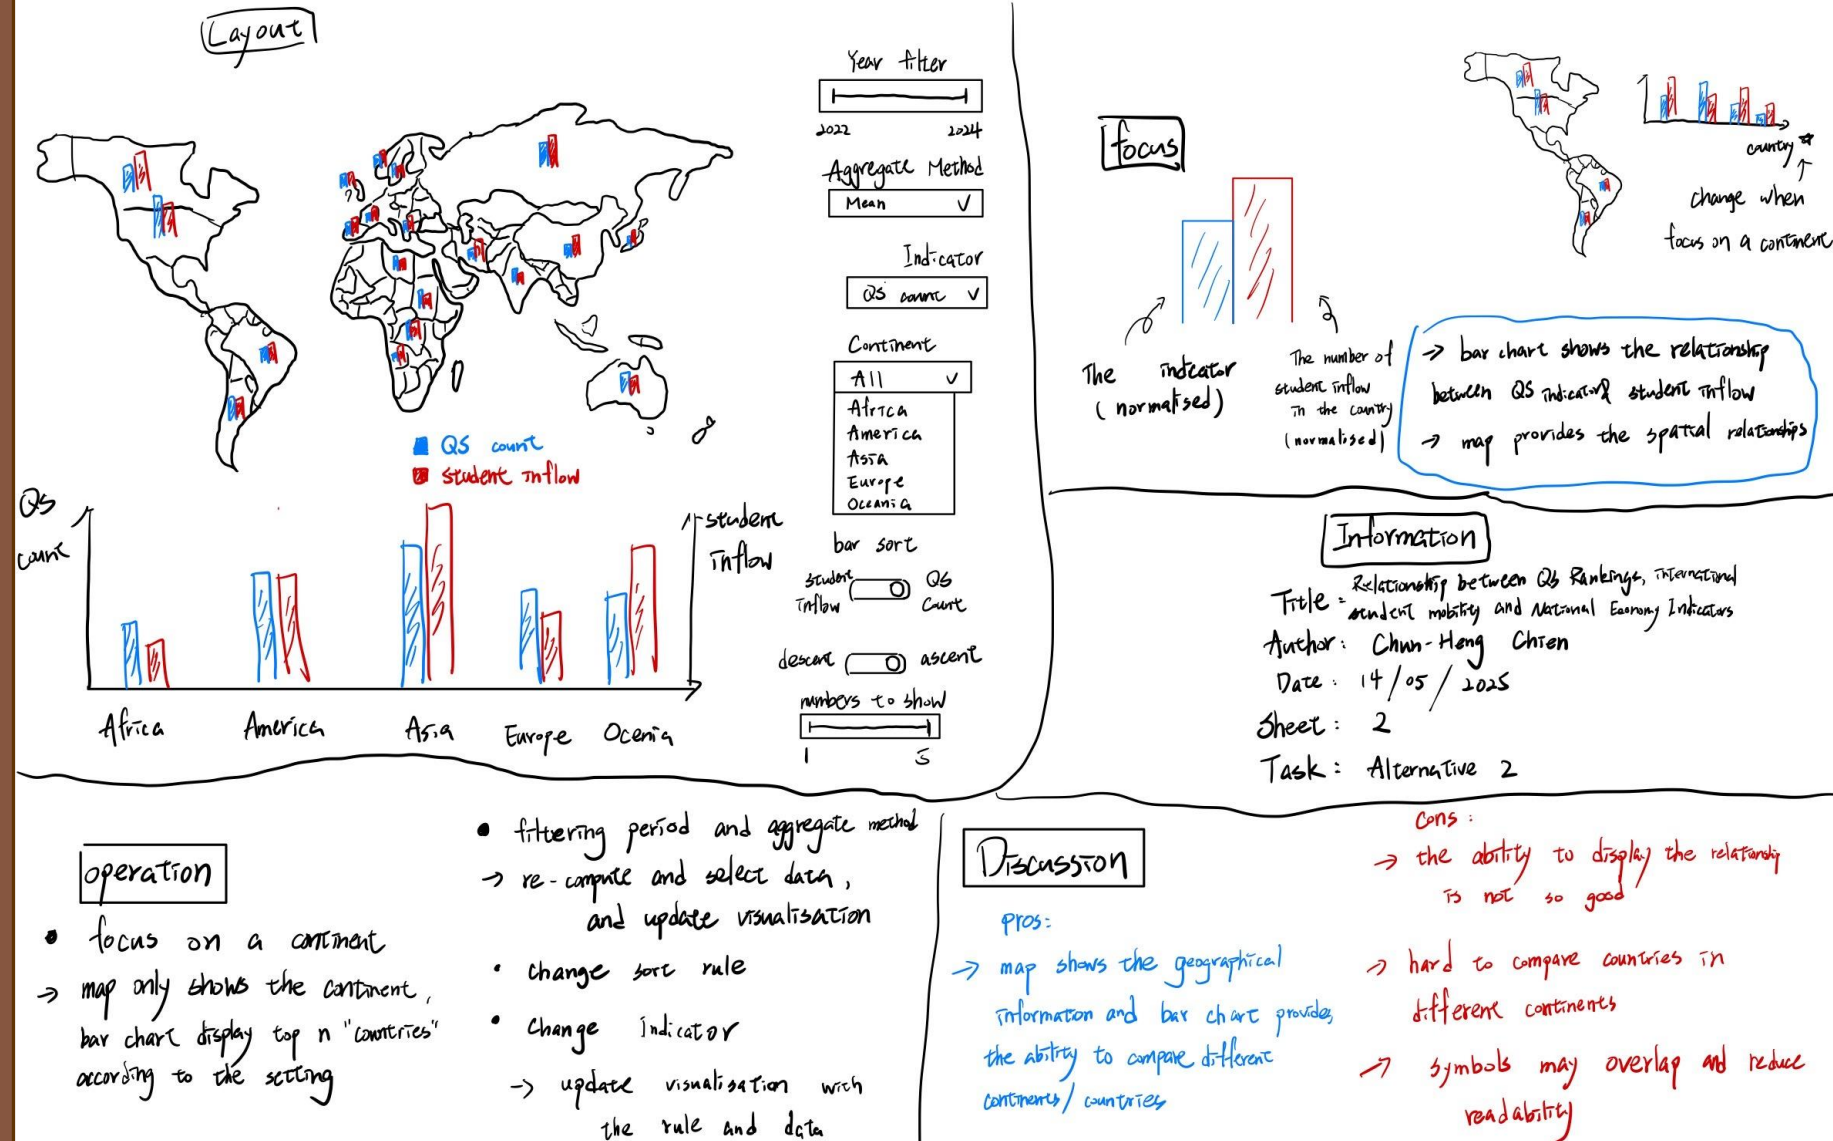 Layout
Year filter
2022 2024
Aggregate Method
Mean
Indicator
QS count
Continent
All
Africa
America
Asia
Europe
Oceania
bar sort
student inflow
QS count
descent ascent
numbers to show
1 5
QS count
student inflow
QS count
student inflow
Africa America Asia Europe Ocenia
focus
The indicator
(normalised)
The number of
student inflow
in the country
(normalised)
country
change when
focus on a continent
→ bar chart shows the relationship
between QS indicator & student inflow
→ map provides the spatial relationships
Information
Title: Relationship between QS Rankings, international
student mobility and National Economy Indicators
Author: Chun-Heng Chien
Date: 14/05/2025
Sheet: 2
Task: Alternative 2
operation
• focus on a continent
→ map only shows the continent,
bar chart display top n "countries"
according to the setting
• filtering period and aggregate method
→ re-compute and select data,
and update visualisation
• change sort rule
• change indicator
→ update visualisation with
the rule and data
Discussion
pros:
→ map shows the geographical
information and bar chart provides
the ability to compare different
continents/countries
cons:
→ the ability to display the relationship
is not so good
→ hard to compare countries in
different continents
→ symbols may overlap and reduce
readability